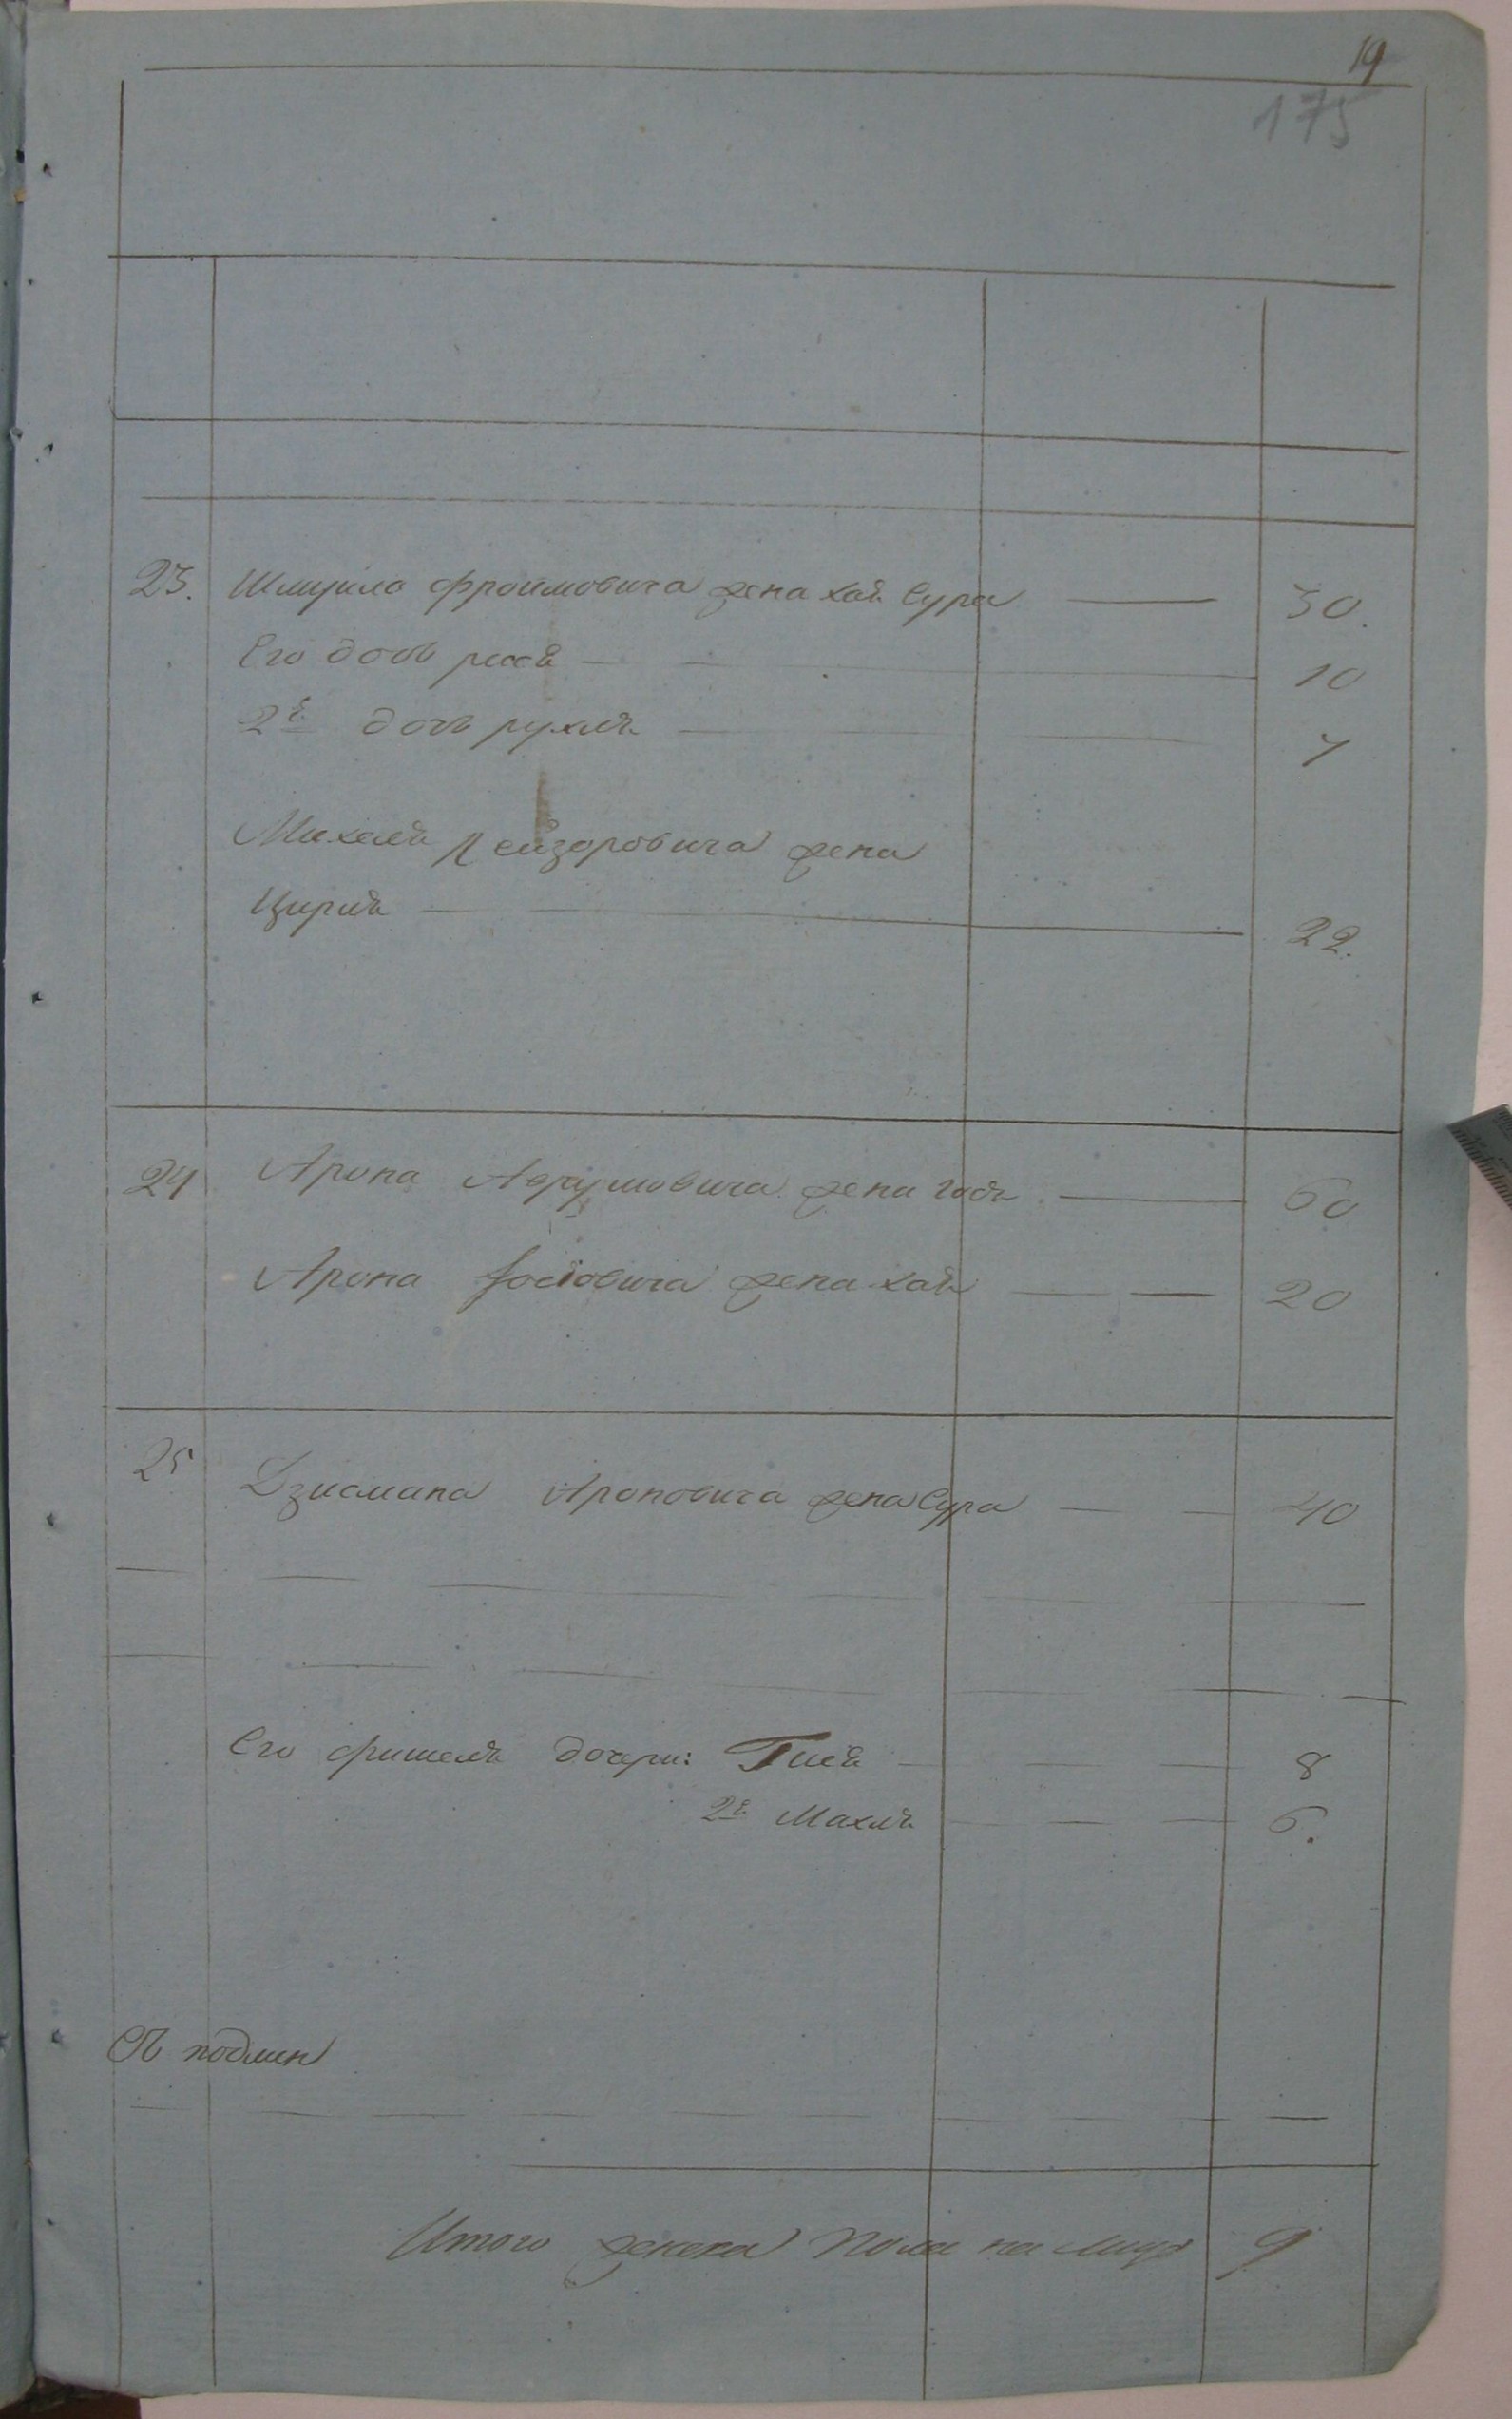 19
175
23. Шмуила Фроимовича жена хая Сура 30.
Его дочь рися 10
2я дочь рухля 7
Михеля Лейзоровича жена
Цирля 22.
24 Арона Абрумовича жена года 60
Арона Іосіовича жена хая 20
25 Дзисмана Ароновича жена Сура 40
Его фишеля дочери: Гися 8
2я Махля 6.
Съ подлин
Итого женска Пола на лицо 9